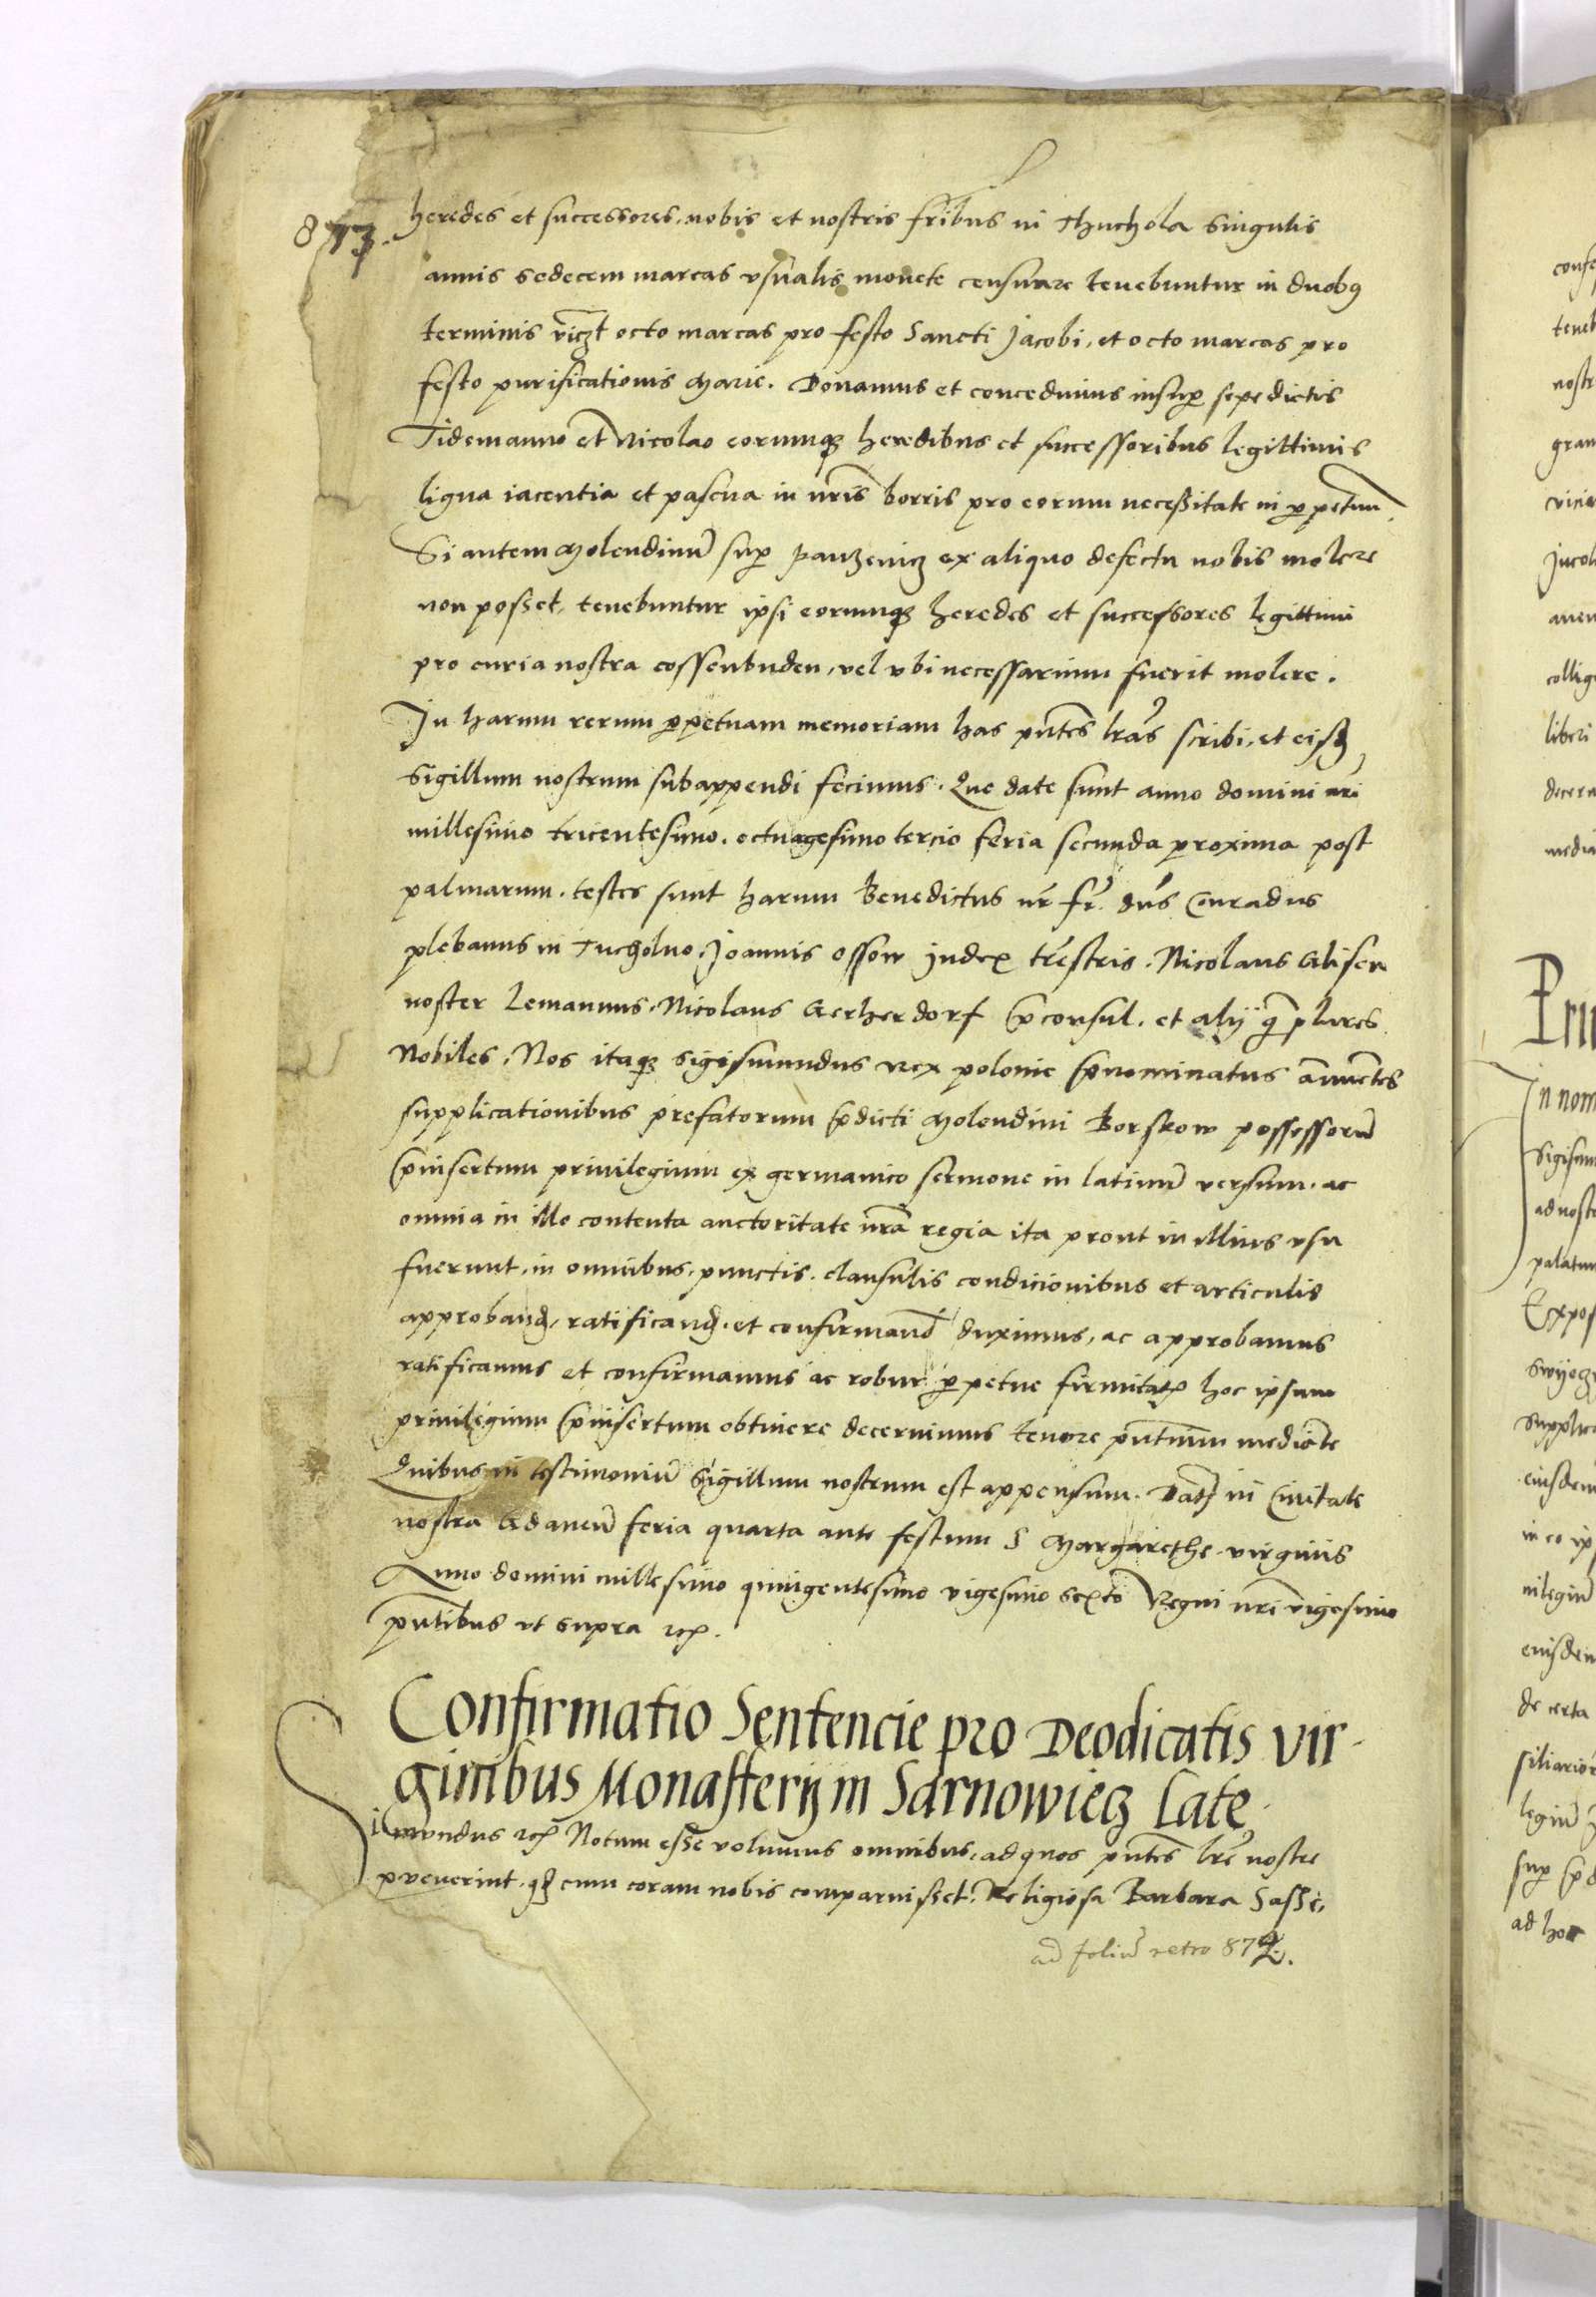 873.
heredes et successores. nobis et nostris fribus in Thuchola singulis
annis sedecem marcas vsualis monete censuare tenebuntur in duobꝯ
terminis viczt octo marcas pro festo Sancti Jacobi, et octo marcas pro
festo purificationis Marie. Donamus et concedimus insuꝑ sepe dictis
Tidemanno et Nicolao eorumqꝫ heredibus et successoribus legittimis
ligna iacentia et pascua in nris borris pro eorum necessitate in ꝑpetuum
Si autem Molendinū suꝑ panzenicz ex aliquo defectu nobis molere
non posset, tenebuntur ipsi eorumqꝫ heredes et successores legittimi
pro curia nostra cossenbuden, vel vbi necessarium fuerit molere.
In harum rerum ꝑpetuam memoriam has pntes lras scribi, et eisꝫ
Sigillum nostrum subappendi fecimus. Que date sunt anno domini nri
millesimo tricentesimo. octuagesimo tercio feria secunda proxima post
palmarum. testes sunt harum Benedictus nr fr. dns Conradus
plebanus in Tucholno. Joannis ossow judex trestris. Nicolaus Glisen
noster Lemannus. Nicolaus Gerherdorf ꝓconsul. et alij qm̄ plures
Nobiles. Nos itaqꝫ Sigismundus rex polonie p̄nominatus annuentes
supplicationibus prefatorum p̄dicti Molendini Borskow possessorū
p̄insertum priuilegium ex germanico sermone in latinū versum. ac
omnia in illo contenta auctoritate nrā regia ita prout in illius vsu
fuerunt. in omnibus. punctis. clausulis condicionibus et articulis
approband, ratificand. et confirmand duximus, ac approbamus
ratificamus et confirmamus ac robur ꝑpetue firmitatꝭ hoc ipsum
priuilegium p̄insertum obtinere decernimus tenore pntium mediante
Quibus in testimoniū Sigillum nostrum est appensum. Datꝫ in Ciuitate
nostra Gdanen feria quarta ante festum S Margarethe virginis
Anno domini millesimo quingentesimo vigesimo sexto Regni nri vigesimo
pntibus vt supra ꝛcꝭ.
Confirmatio Sentencie pro Deodicatis vir-
ginibus Monasterij in Sarnowiecz Late
Simundus ꝛcꝭ Notum esse volumus omnibus. ad quos pntes lre nostre
peruenerint. qꝫ cum coram nobis comparuisset. Religiosa Barbara Sasse,
ad foliū retro 872.